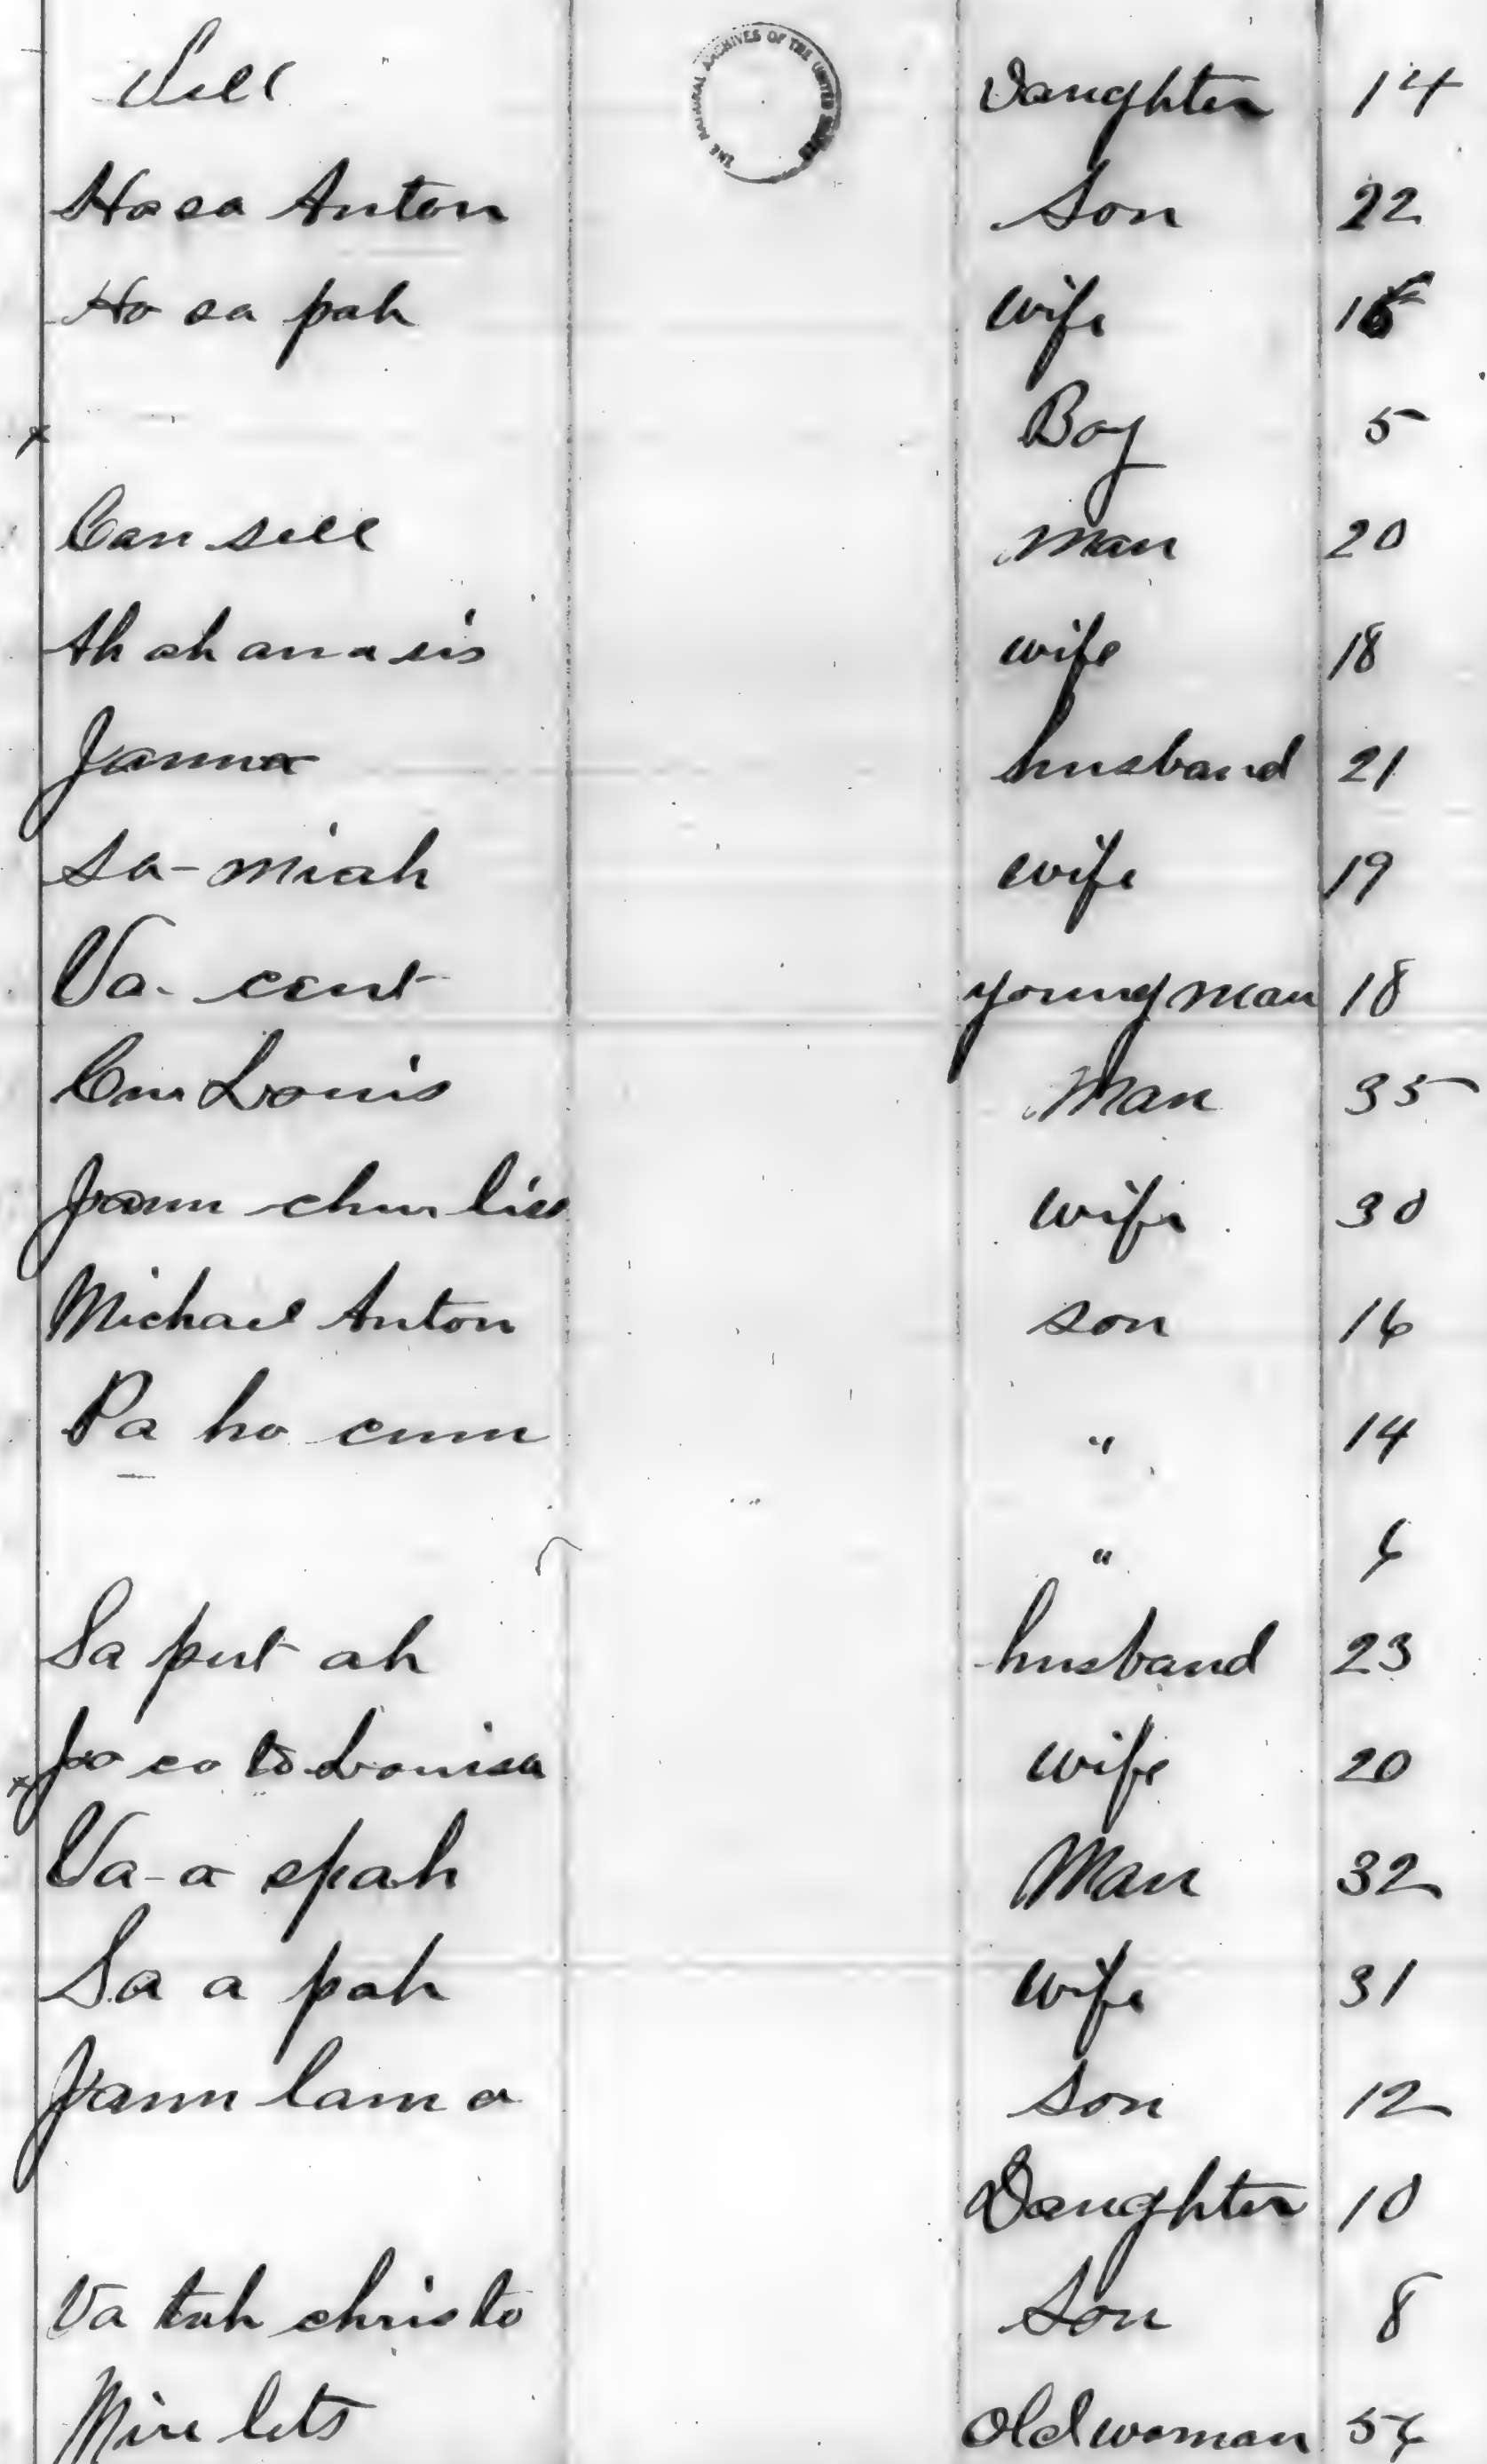 Sell Daughter 14
THE NATIONAL ARCHIVES OF THE UNITED STATES
Hosa Anton Son 22
Ho sa pah wife
Boy 5
Can sell man 20
Ah ah ana sis wife 18
Janna husband 21
Sa-miah wife 19
Va-cent young man 18
Louis Man 35
Janm wife 30
Michael Anton son 16
Pa ho cum " 14
" 6
Sa put ah husband 23
Louisa wife 20
Va-a spah Man 32
Sa a pah wife 31
Janm lam a Son 12
Daughter 10
Va tah christo Son 8
lets Old woman